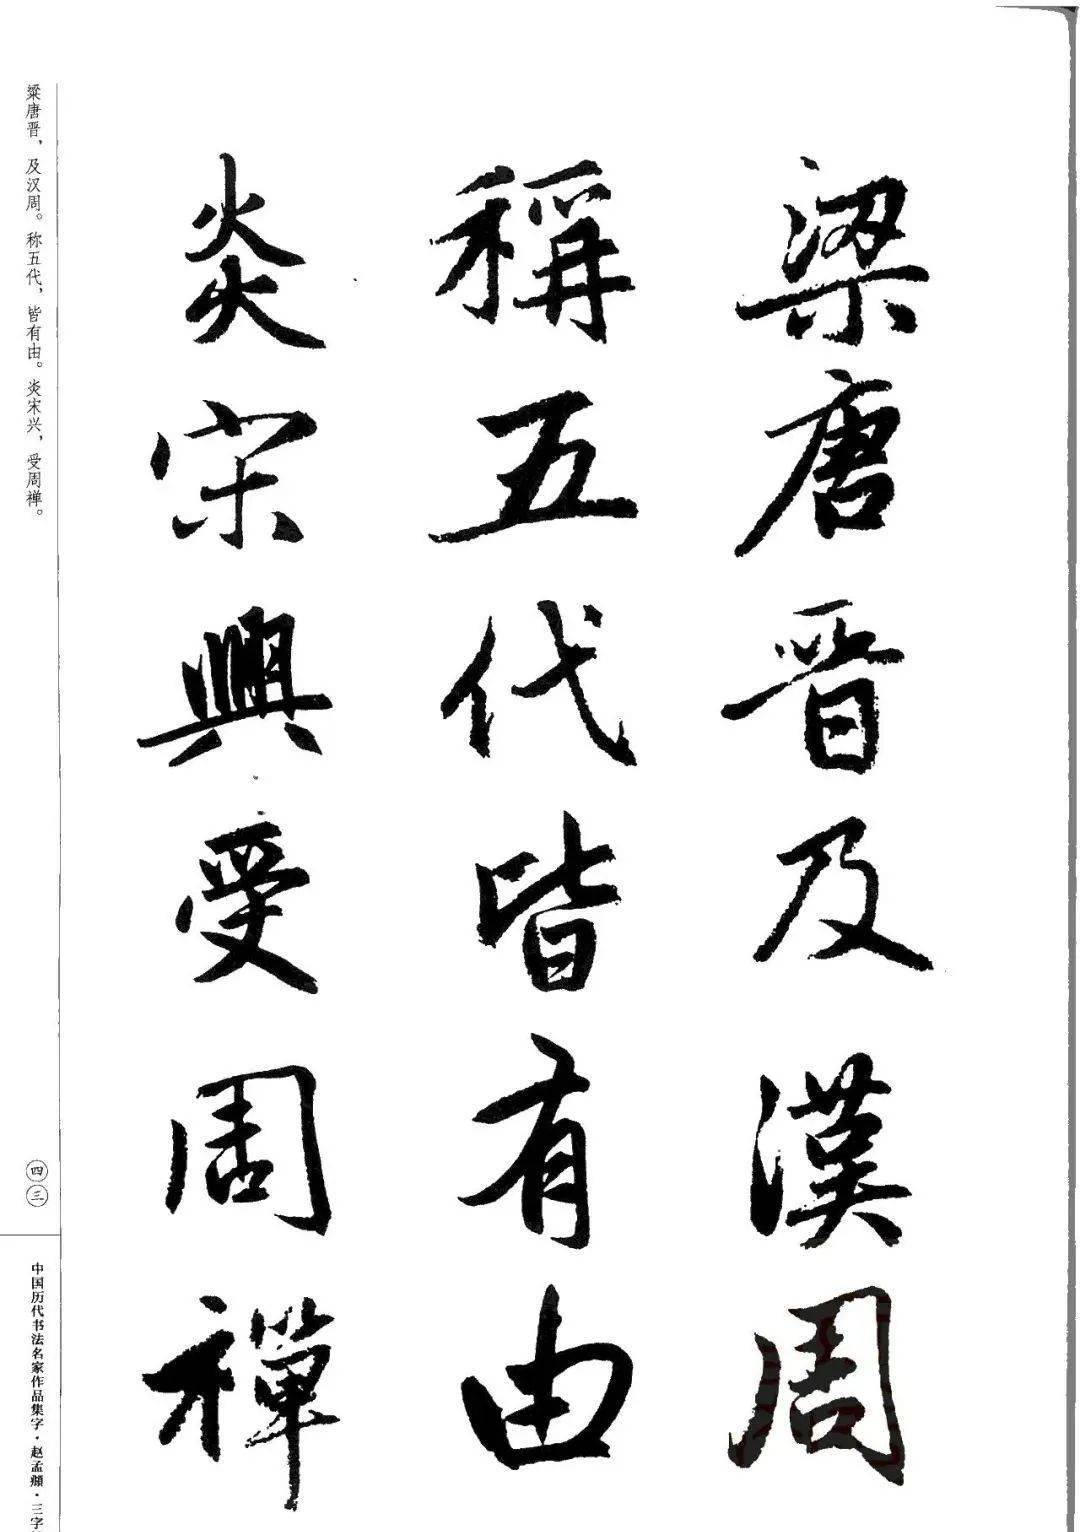 梁唐晋及漢周
稱五代皆有由
炎宋興受周禪
粱唐晋，及汉周。称五代，皆有由。炎宋兴，受周禅。
四三
中国历代书法名家作品集字·赵孟頫·三字